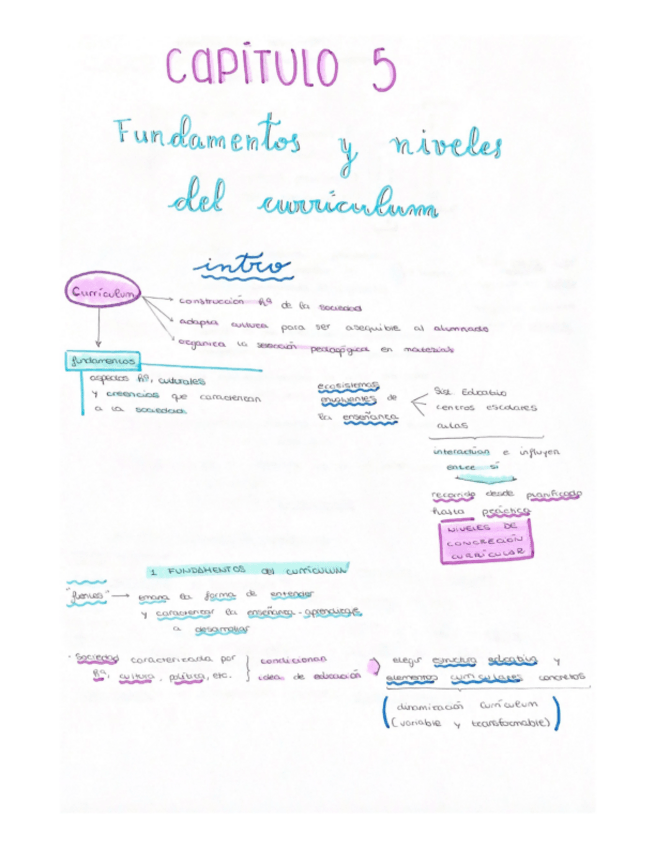 CAPÍTULO 5
Fundamentos y niveles
del curriculum
intro
Curriculum
construcción hª de la sociedad
adapta cultura para ser asequible al alumnado
organiza la selección pedagógica en materials
fundamentos
aspectos hª, culturales
y creencias que caracterizan
a la sociedad
ecosistemas
envolventes de
la enseñanza
Sist. Educativo
centros escolares
aulas
interactúan e influyen
entre sí
recorrido desde planificado
hasta práctica
NIVELES DE
CONCRECIÓN
CURRICULAR
1 FUNDAMENTOS del CURRÍCULUM
"fuentes" → emana la forma de entender
y caracterizar la enseñanza-aprendizaje
a desarrollar
· Sociedad caracterizada por
hª, cultura, política, etc.
condicionan
idea de educación
elegir estructura educativa y
elementos curriculares concretos
dinamización curriculum
(variable y transformable)